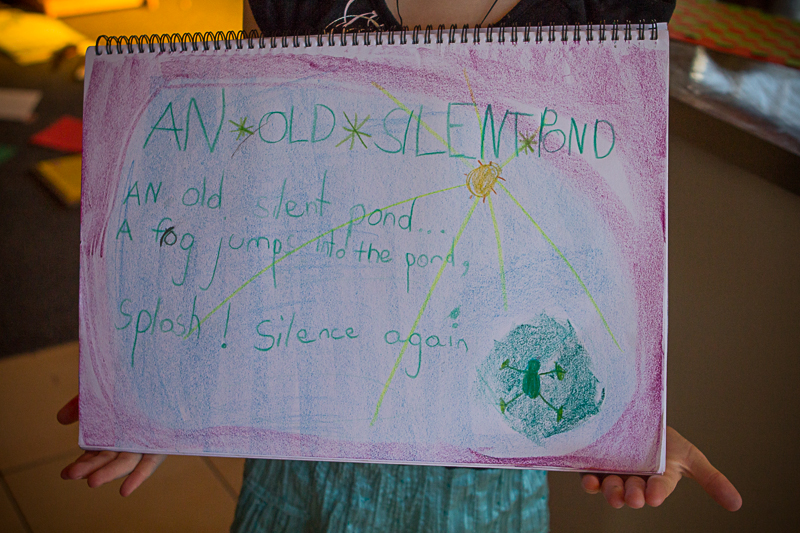 AN * OLD * SILENT * POND
AN old silent pond...
A fog jumps into the pond,
Splash! Silence again